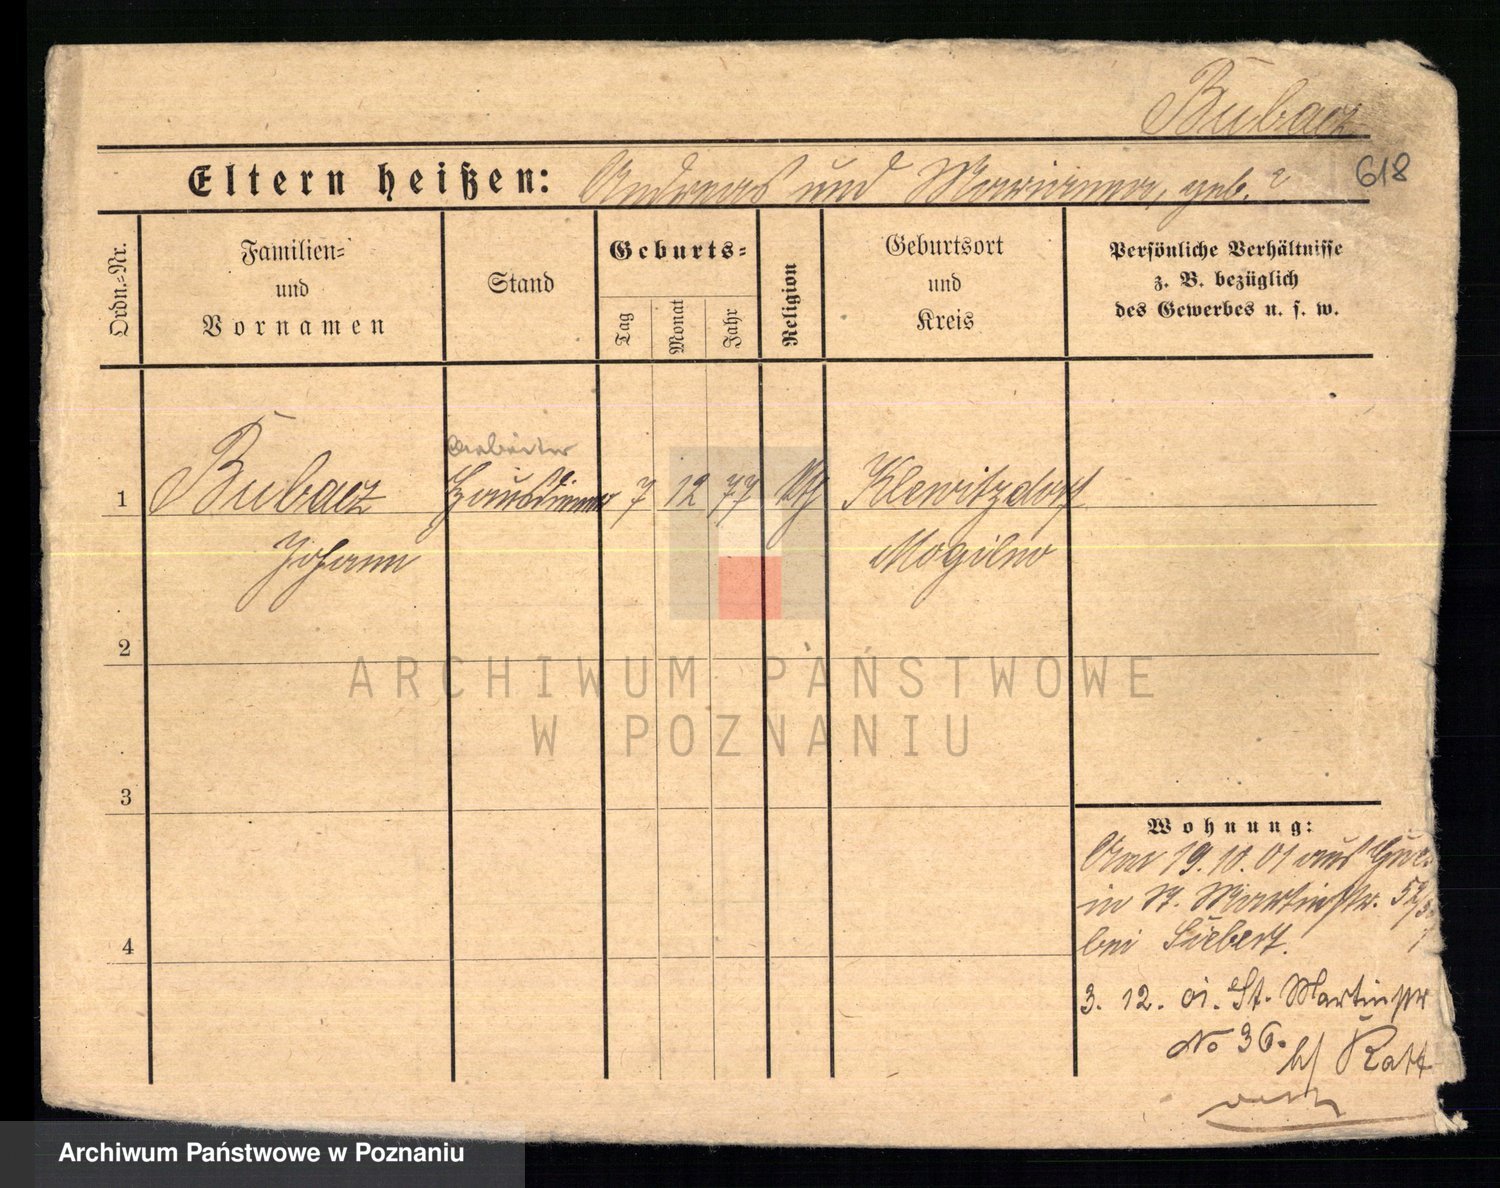 Bubacz
Eltern heißen: Andreas und Marianna, geb. ?
618
Ordn.-Nr.
Familien-
und
Vornamen
Stand
Geburts-
Tag
Monat
Jahr
Religion
Geburtsort
und
Kreis
Persönliche Verhältnisse
z. B. bezüglich
des Gewerbes u. s. w.
Arbeiter
1 Bubacz Hausdiener 7 12 77 Klewitzdorf
Johann Mogilno
2
3
4
Wohnung:
Am 19.10.01 aus
in St. Martinstr. 52/
bei Siebert.
3. 12. 01. St. Martinstr
No 36. b/ Ratt
ARCHIWUM PAŃSTWOWE
W POZNANIU
Archiwum Państwowe w Poznaniu